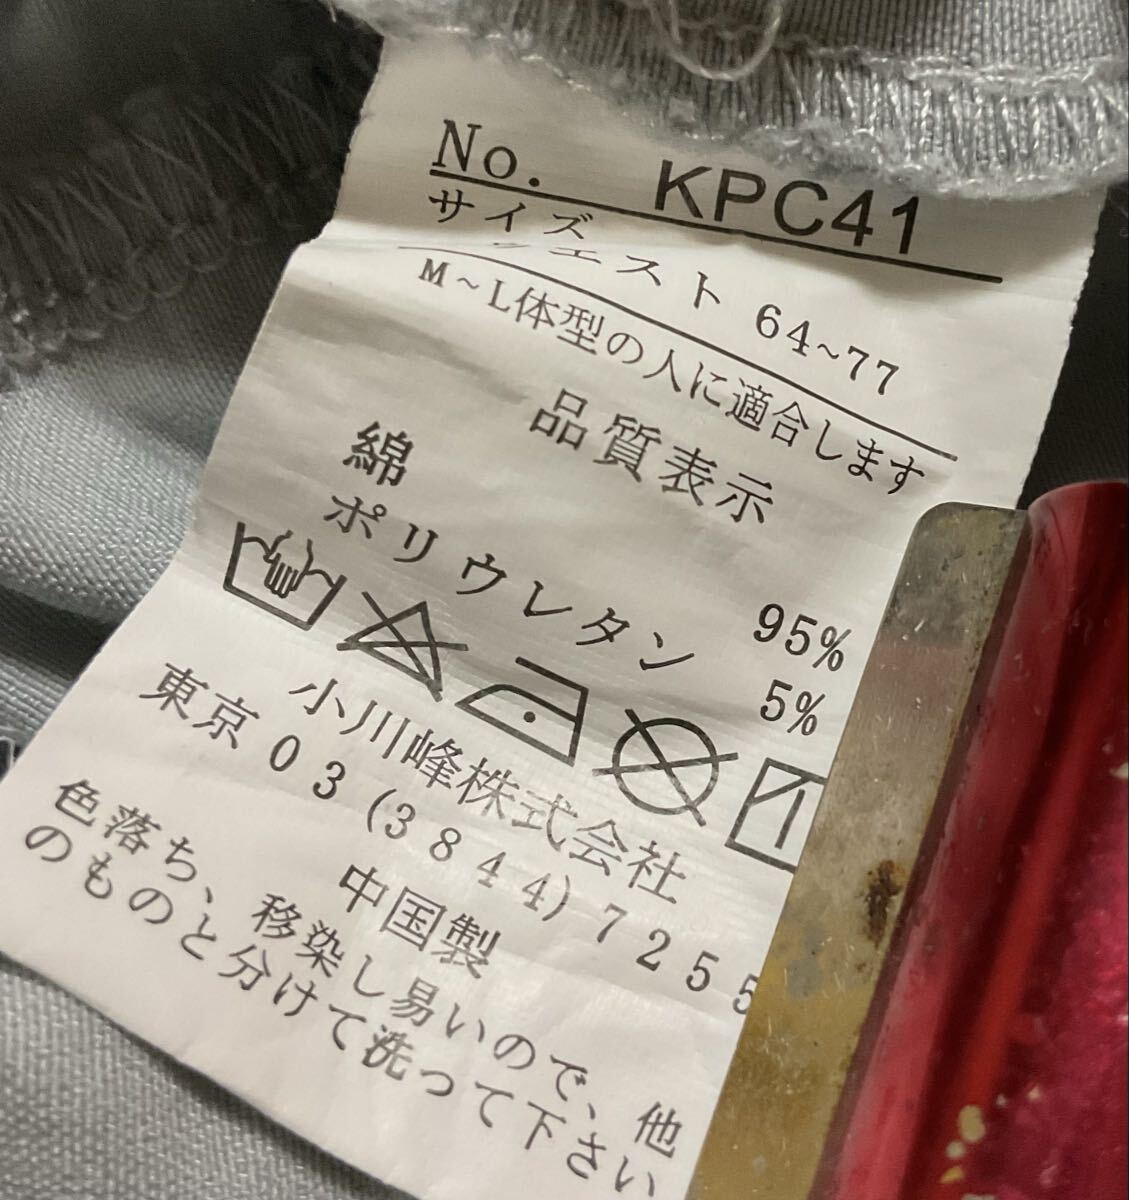 No. KPC41
サイズ
ウエスト 64~77
M~L体型の人に適合します
品質表示
綿 95%
ポリウレタン 5%
小川峰株式会社
東京 03(3844)7255
中国製
色落ち、移染し易いので、他
のものと分けて洗って下さい